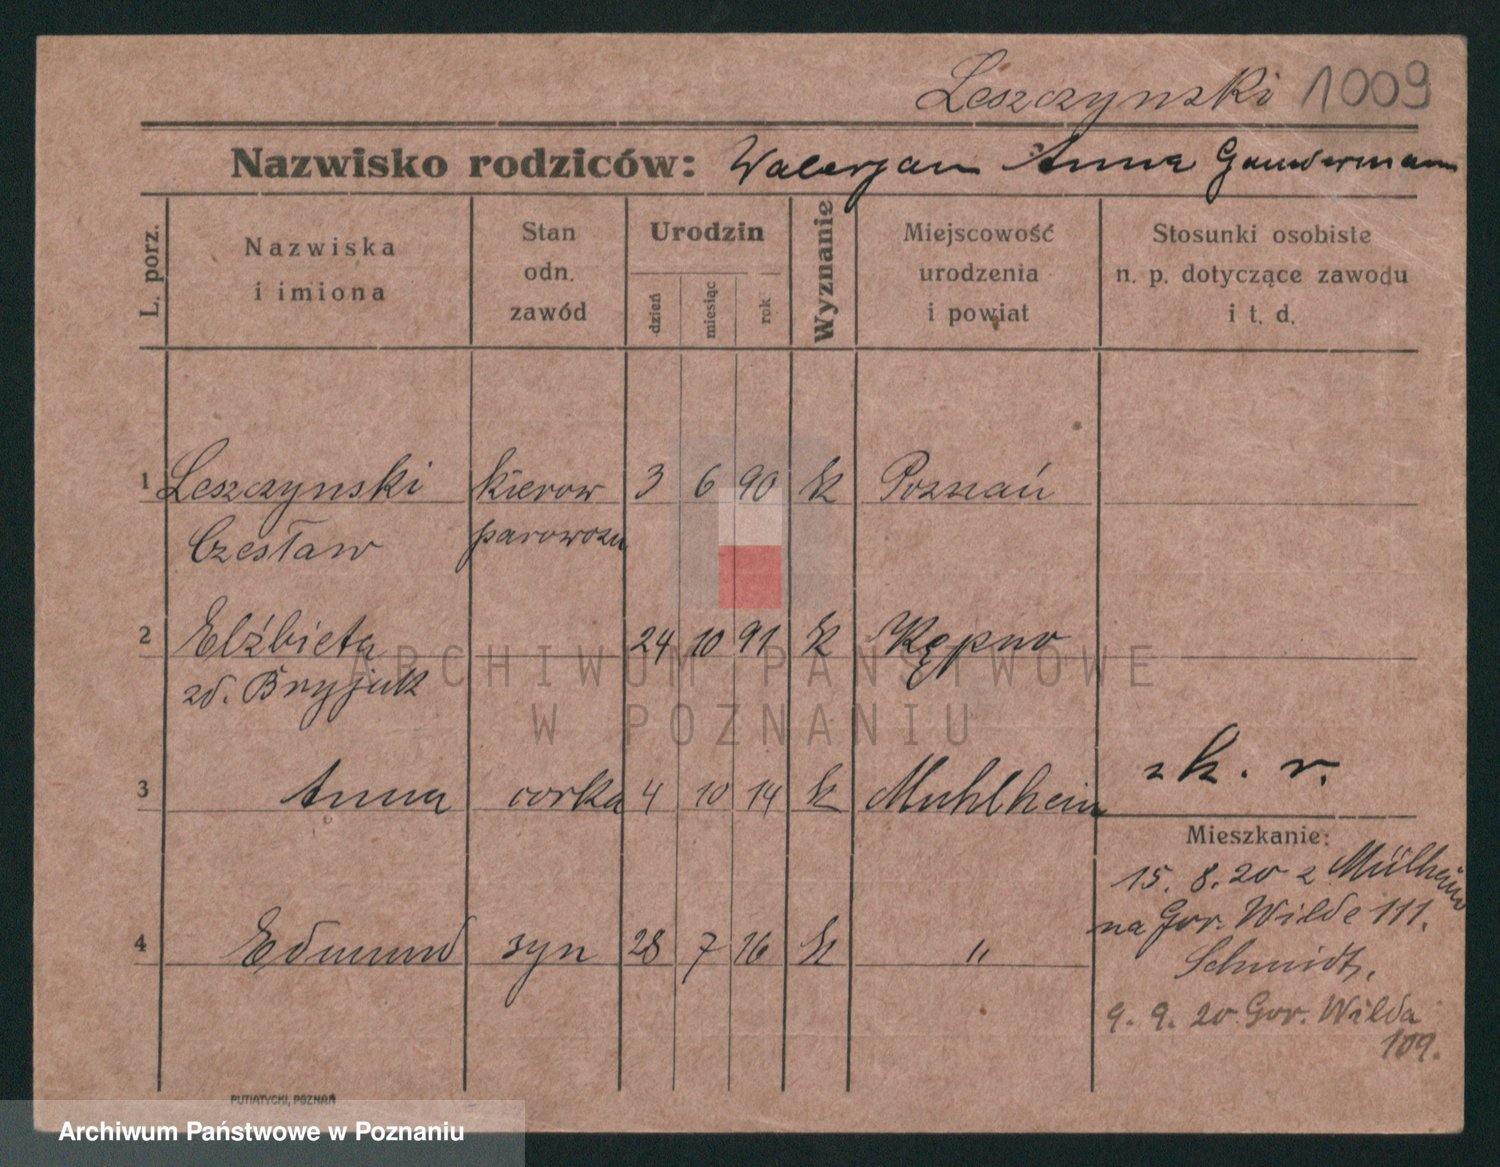 Leszczynski 1009
Nazwisko rodziców: Walerjan Anna Gaudermann
L. porz.
Nazwiska i imiona
Stan odn. zawód
Urodzin
dzień
miesiąc
rok
Wyznanie
Miejscowość urodzenia i powiat
Stosunki osobiste n. p. dotyczące zawodu i t. d.
1 Leszczynski kierow 3 6 90 k Poznań
Czesław parowozu
2 Elżbieta 24 10 91 k Kępno
zd. Bryjak
zk. r.
3 Anna corka 4 10 14 k Muhlheim
Mieszkanie:
15. 8. 20 z Mülheim
na Gór. Wilde 111.
Schmidt.
4 Edmund syn 28 7 16 k "
9. 9. 20 Gor. Wilda
109.
PUTIATYCKI, POZNAŃ
ARCHIWUM PAŃSTWOWE
W POZNANIU
Archiwum Państwowe w Poznaniu